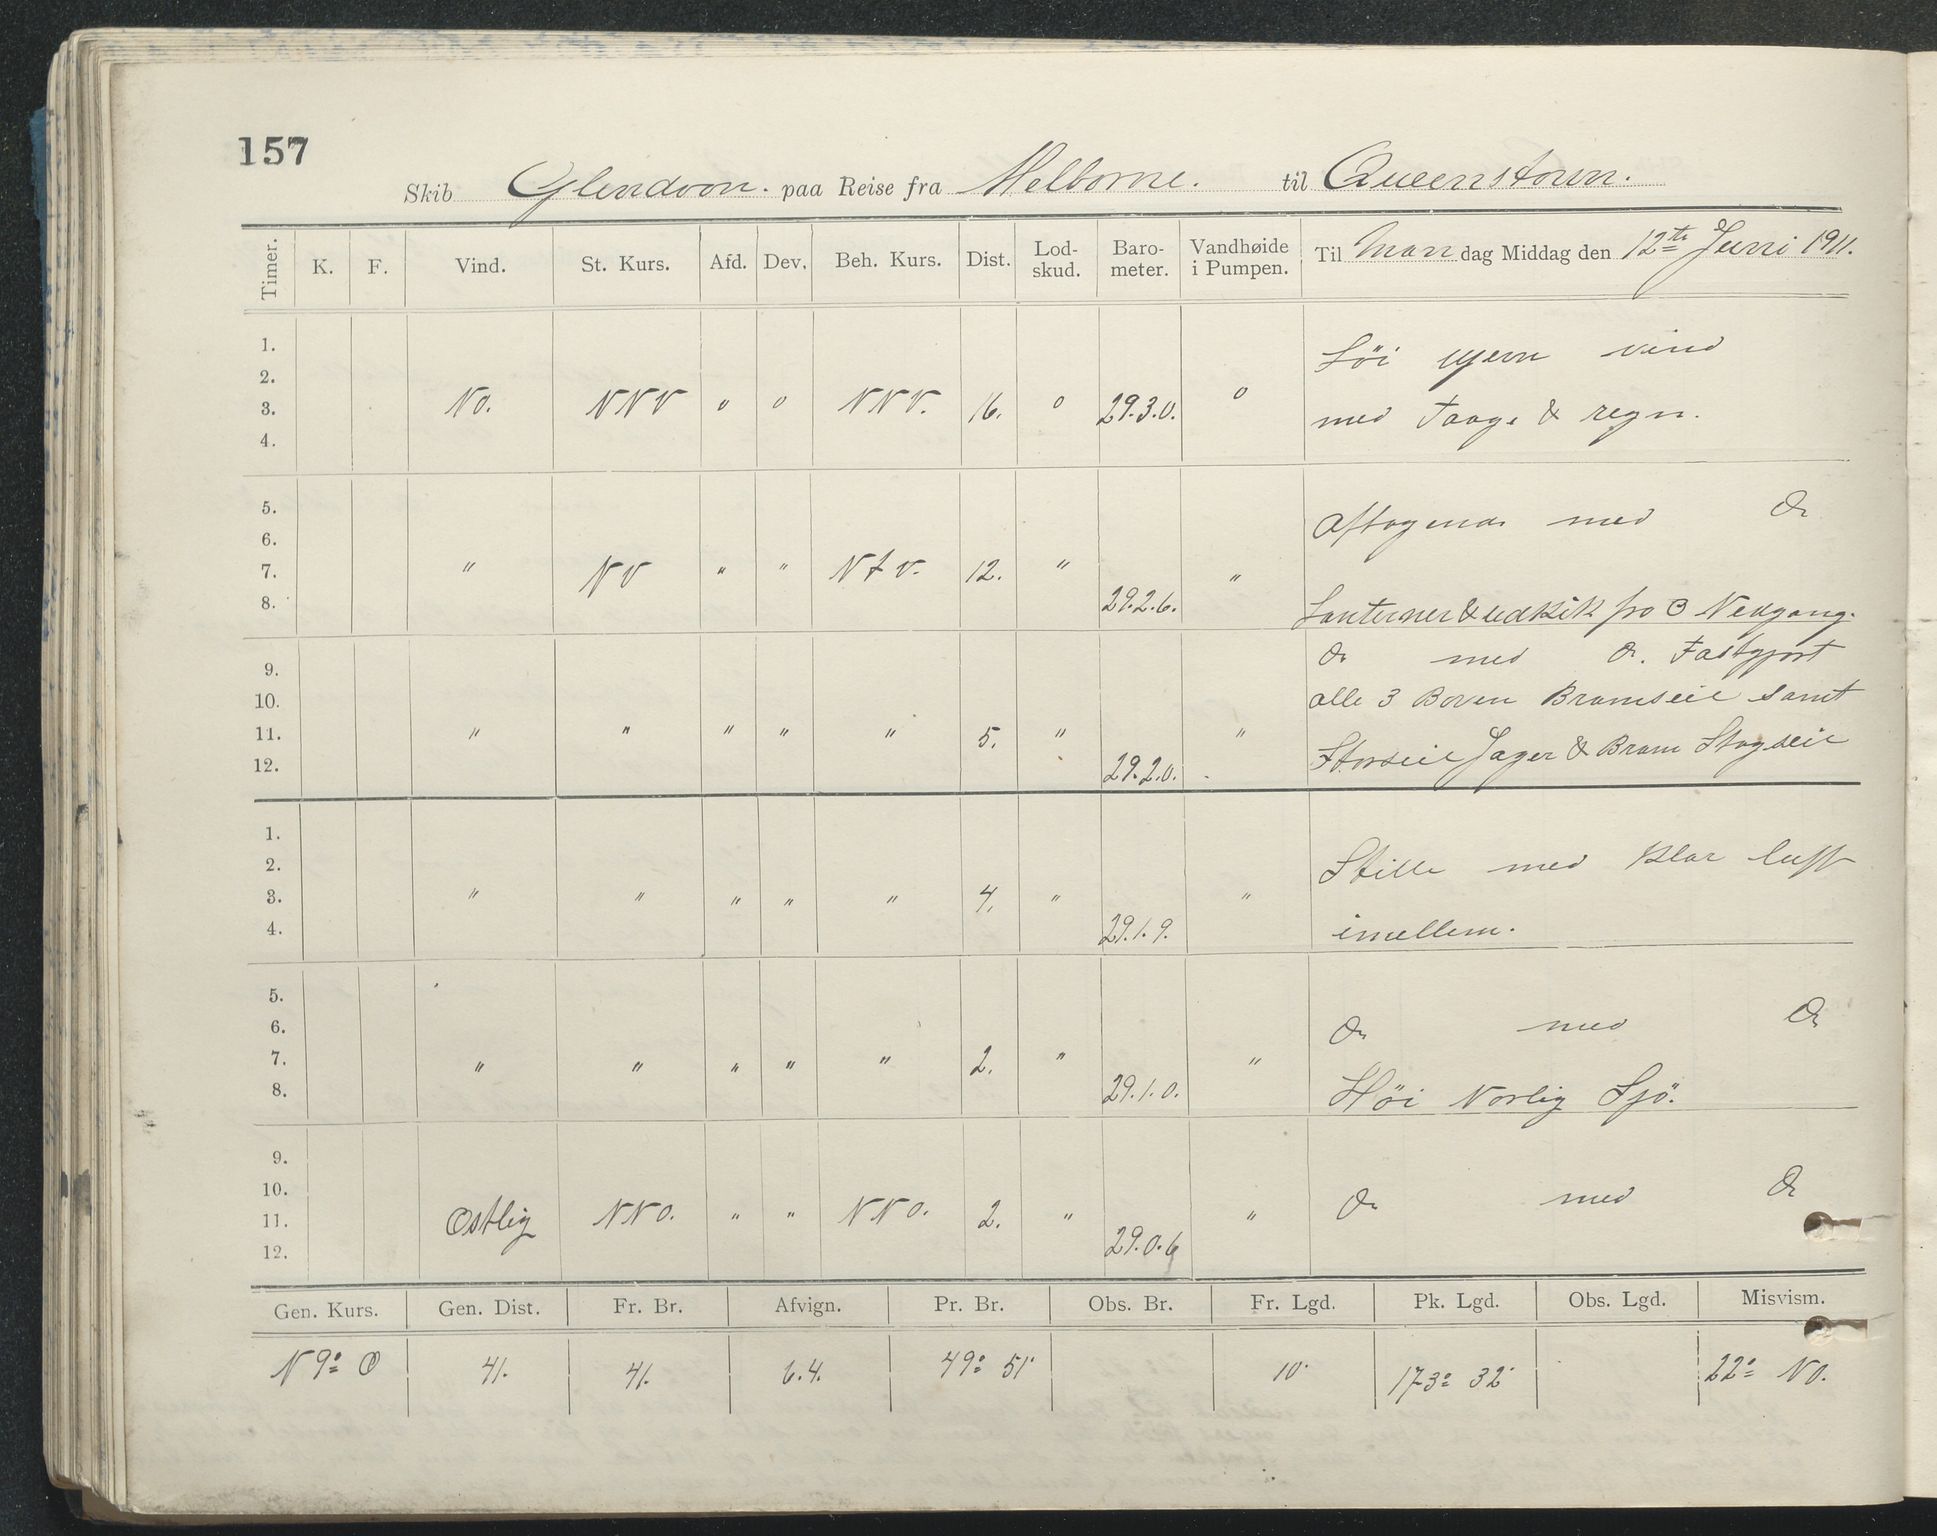 157
Skib Glendoon. paa Reise fra Melborne. til Queenstown.
Timer. K. F. Vind. St. Kurs. Afd. Dev. Beh. Kurs. Dist. Lod-skud. Baro-meter. Vandhøide i Pumpen. Til Man dag Middag den 12te Juni 1911.
1.
2.
3.
4.
No. NNV o o NNV. 16. o 29.3.0. o
Löi gjevn vind
med Taage & regn.
5.
6.
7.
8.
" NV " " N t V. 12. " 29.2.6. "
Aftagende med Do
Lanterner & udkik fra ʘ Nedgang.
9.
10.
11.
12.
" " " " " 5. " 29.2.0. "
Do med Do. Fastgjort
alle 3 Boven Bramseil samt
Storseil Jager & Bram Stagseil
1.
2.
3.
4.
" " " " " 4. " 29.1.9. "
Stille med klar luft
imellem.
5.
6.
7.
8.
" " " " " 2. " 29.1.0. "
Do med Do
Höi Norlig Sjö.
9.
10.
11.
12.
Ostlig NNO. " " NNO. 2. " 29.0.6 "
Do med Do
Gen. Kurs. Gen. Dist. Fr. Br. Afvign. Pr. Br. Obs. Br. Fr. Lgd. Pk. Lgd. Obs. Lgd. Misvism.
N 9° O 41. 41. 6.4. 49° 51' 10' 173° 32' 22° NO.